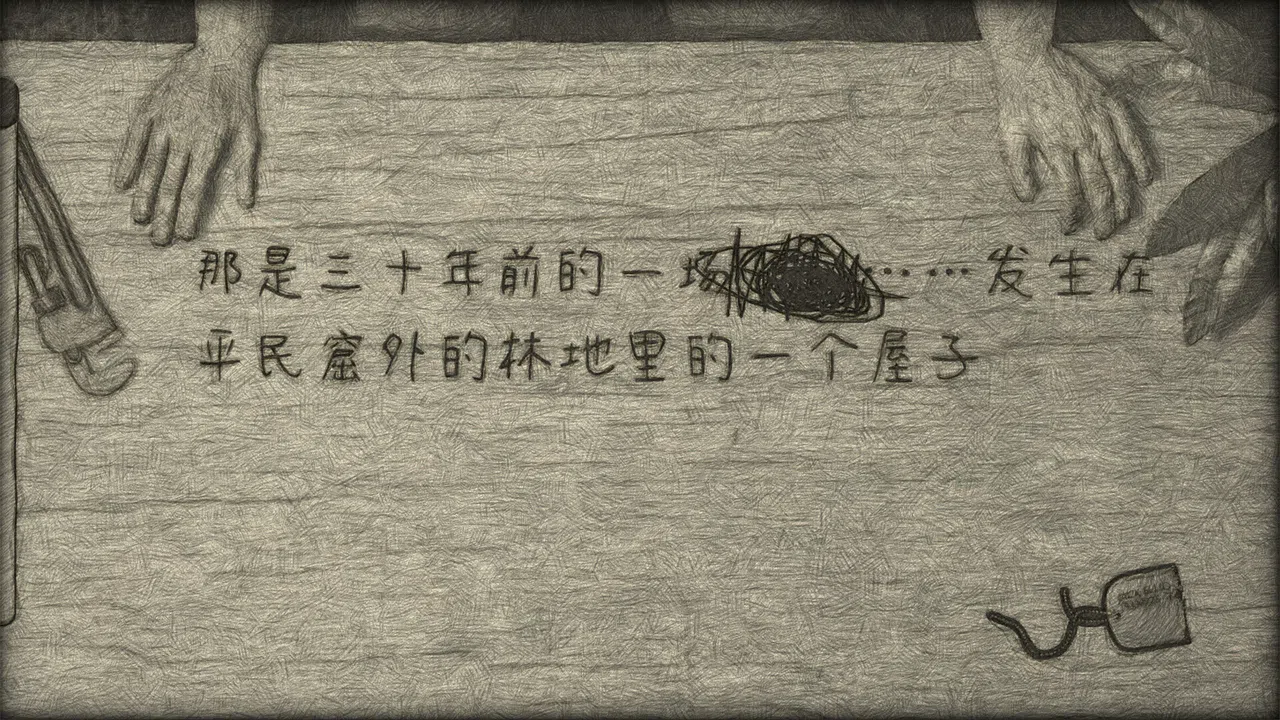 那是三十年前的一场……发生在
平民窟外的林地里的一个屋子